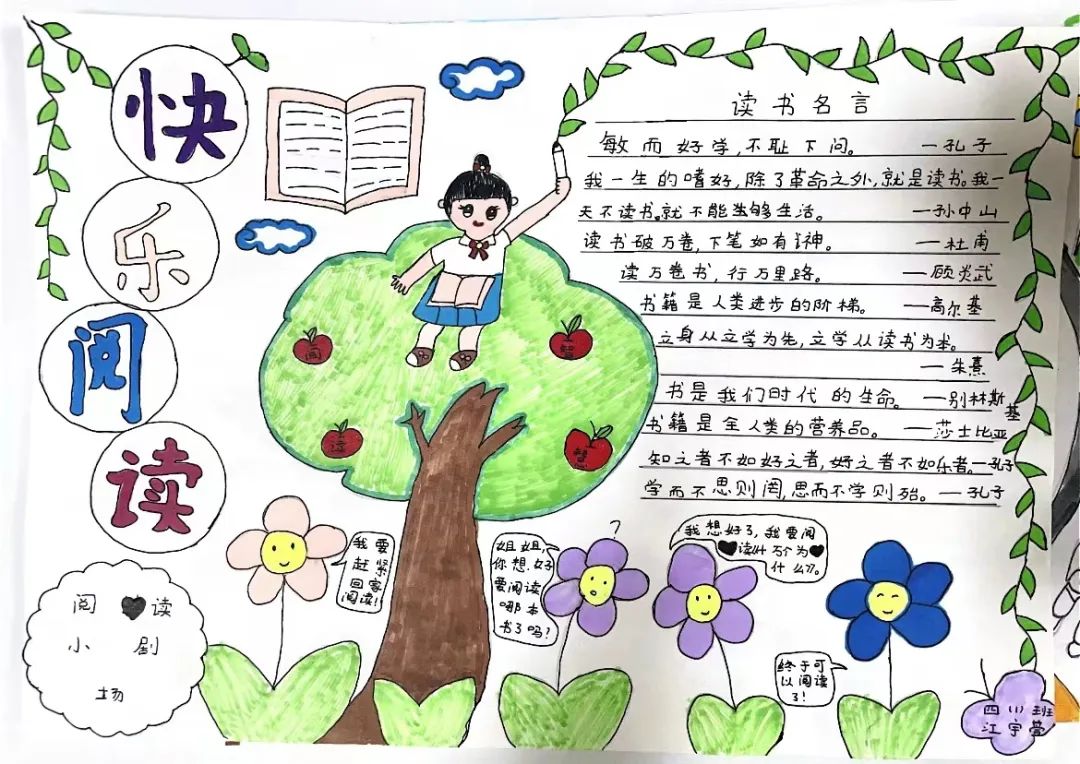 快
乐
阅
读
读书名言
敏而好学,不耻下问。 —孔子
我一生的嗜好,除了革命之外,就是读书。我一
天不读书。就不能生够生活。 —孙中山
读书破万卷,下笔如有神。 —杜甫
读万卷书,行万里路。 —顾炎武
书籍是人类进步的阶梯。 —高尔基
立身从立学为先,立学从读书为本。
—朱熹
书是我们时代的生命。 —别林斯基
书籍是全人类的营养品。 —莎士比亚
知之者不如好之者,好之者不如乐者。—孔子
学而不思则罔,思而不学则殆。—孔子
阅
智
读
慧
我要
赶紧
回家
阅读!!
姐姐,
你想好
要阅读
哪本
书了吗?
?
我想好了,我要阅
读《十万个为
什么》。
终于可
以阅读
了!
阅读
小剧
场
四(1)班
江宇萱